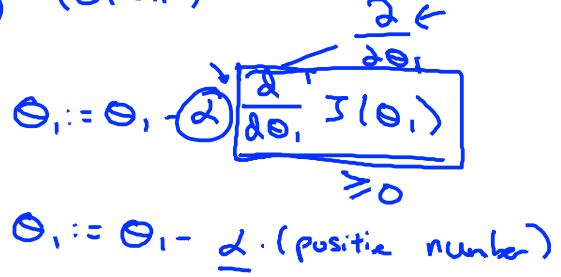 ∂/∂θ₁ ←
θ₁ := θ₁ - α d/dθ₁ J(θ₁)
≥ 0
θ₁ := θ₁ - α · (positie number)